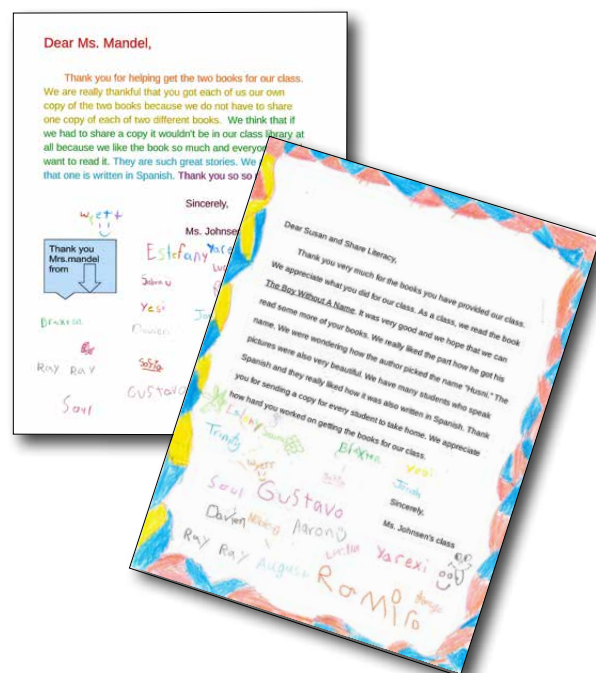 Dear Ms. Mandel,
Thank you for helping get the two books for our class.
We are really thankful that you got each of us our own
copy of the two books because we do not have to share
one copy of each of two different books. We think that if
we had to share a copy it wouldn't be in our class library at
all because we like the book so much and everyone
want to read it. They are such great stories. We
that one is written in Spanish. Thank you so so
Sincerely,
Ms. Johnsen
wyett
Thank you
Mrs.mandel
from
Estefany
Yesi
Braxton
Davien
Sofia
RAY RAY
GUSTAVO
Saul
Dear Susan and Share Literacy,
Thank you very much for the books you have provided our class.
We appreciate what you did for our class. As a class, we read the book
The Boy Without A Name. It was very good and we hope that we can
read some more of your books. We really liked the part how he got his
name. We were wondering how the author picked the name "Husni." The
pictures were also very beautiful. We have many students who speak
Spanish and they really liked how it was also written in Spanish. Thank
you for sending a copy for every student to take home. We appreciate
how hard you worked on getting the books for our class.
Trinity
Braxton
Yesi
wyett
Saul
Gustavo
Sincerely,
Ms. Johnsen's class
Davien
Aaron
Yarexi
Ray Ray
August
Ramiro